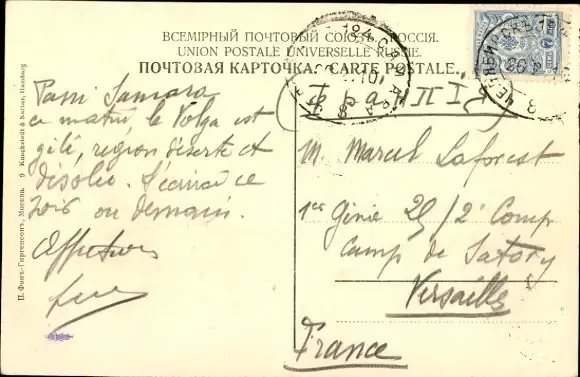 ВСЕМІРНЫЙ ПОЧТОВЫЙ СОЮЗЪ. РОССІЯ.
UNION POSTALE UNIVERSELLE RUSSIE.
ПОЧТОВАЯ КАРТОЧКА. CARTE POSTALE.
Passé Samara
ce matin, le Volga est
gelé, région déserte et
désolée. J'écrirai ce
soir ou demain.
Affectueux
M. Marcel Laforest
1er Génie 25/2e Comp
Camp de Satory
Versailles
France
САМАРА
П. Фонъ-Гиргенсонъ, Москва. 9 Knackstedt & Näther, Hamburg